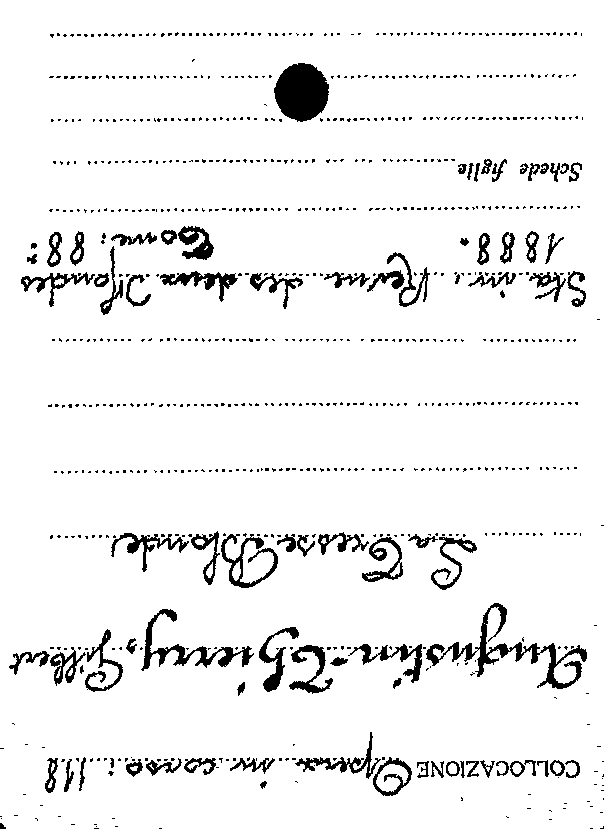 COLLOCAZIONE Opera in corso: 118
Augustin-Thierry, Gilbert
La Tresse Blonde
Sta in: Revue des deux Mondes
1888. Tome: 88:
Schede figlie